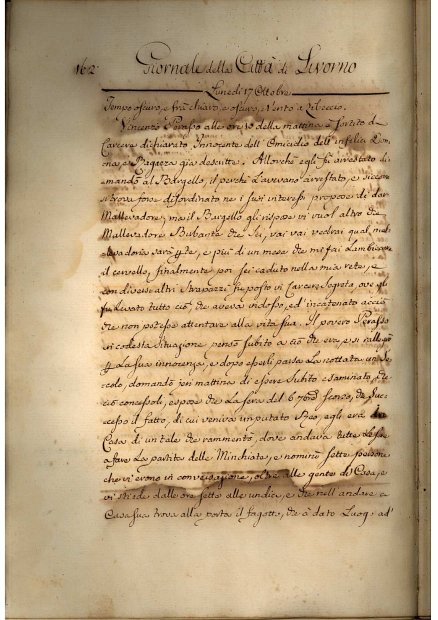 162
Giornale della Città di Livorno
Lunedi 17 Ottobre
Tempo oscuro, e frà chiaro, e oscuro, e Vento a Libeccio.
Vincenzo Perasso alle ore 10 della mattina è sortito di
Carcere dichiarato Innocente dell'Omicidio dell'infelice Don
na, e Ragazza già descritte. Allorchè egli fù arrestato di
mandò al Bargello, il perchè l'avevano arrestato, e siccome
si trova forse disordinato ne i suoi interessi propose di dar
Mallevadore, ma il Bargello gli rispose vi vuol altro che
Mallevadore Birbante che Sei, vai vai vedrai qual mal
levadoria sarà, e più di un mese che mi fai Lambiccare
il cervello, finalmente poi sei caduto nella mia rete, e
con diversi altri strapazzi fù posto in Carcere Segreta, ove gli
fù levato tutto ciò, che aveva indosso, ed incatenato acciò
che non potesse attentare alla vita sua. Il povero Perasso
in codesta situazione pensò subito a ciò che era, e si
la sua innocenza, e dopo esserli parsa la nottata un se
colo, domandò jeri mattina di essere subito esaminato, che
ciò concessoli, espose che la sera del 6 scorso, che suc
cesse il fatto, di cui veniva imputato Reo, egli era in
Casa di un tale che rammentò, dove andava tutte le sere
a fare la partita delle Minchiate, e nominò sette persone
che vi erono in conversazione, oltre alle gente di Casa, e
vi stiede dalle ore sette alle undici, e che nell'andare a
Casa sua trova alla porta il fagotto, che à dato Luogo ad'